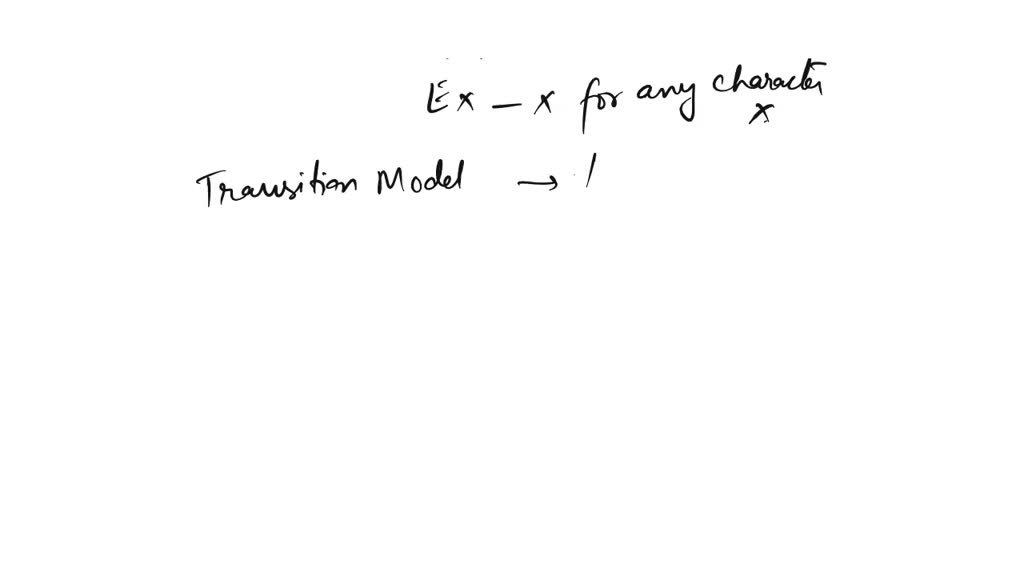 Ex – x for any character
x
Transition Model → /